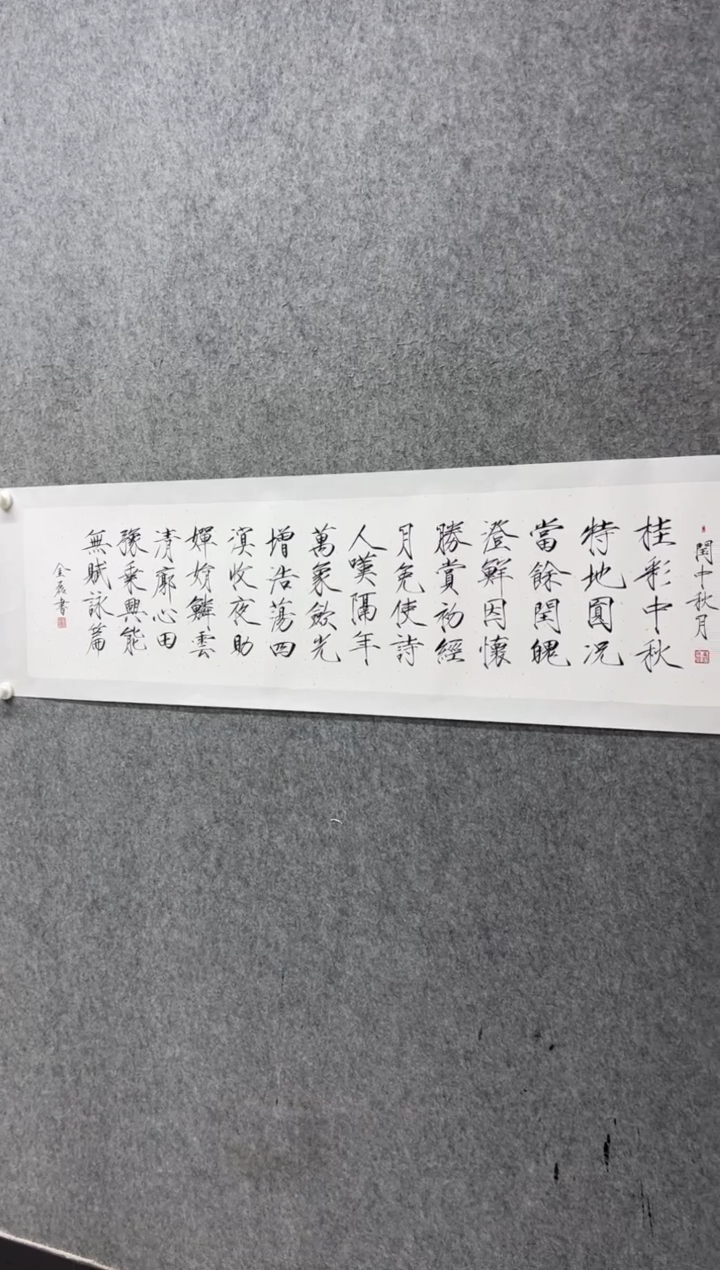 閏中秋月
桂彩中秋
特地圓況
當餘閏魄
澄鮮因懷
勝賞初經
月免使詩
人嘆隔年
萬象斂光
增浩蕩四
溟收夜助
嬋娟鱗雲
清廓心田
豫乘興能
無賦詠篇
書